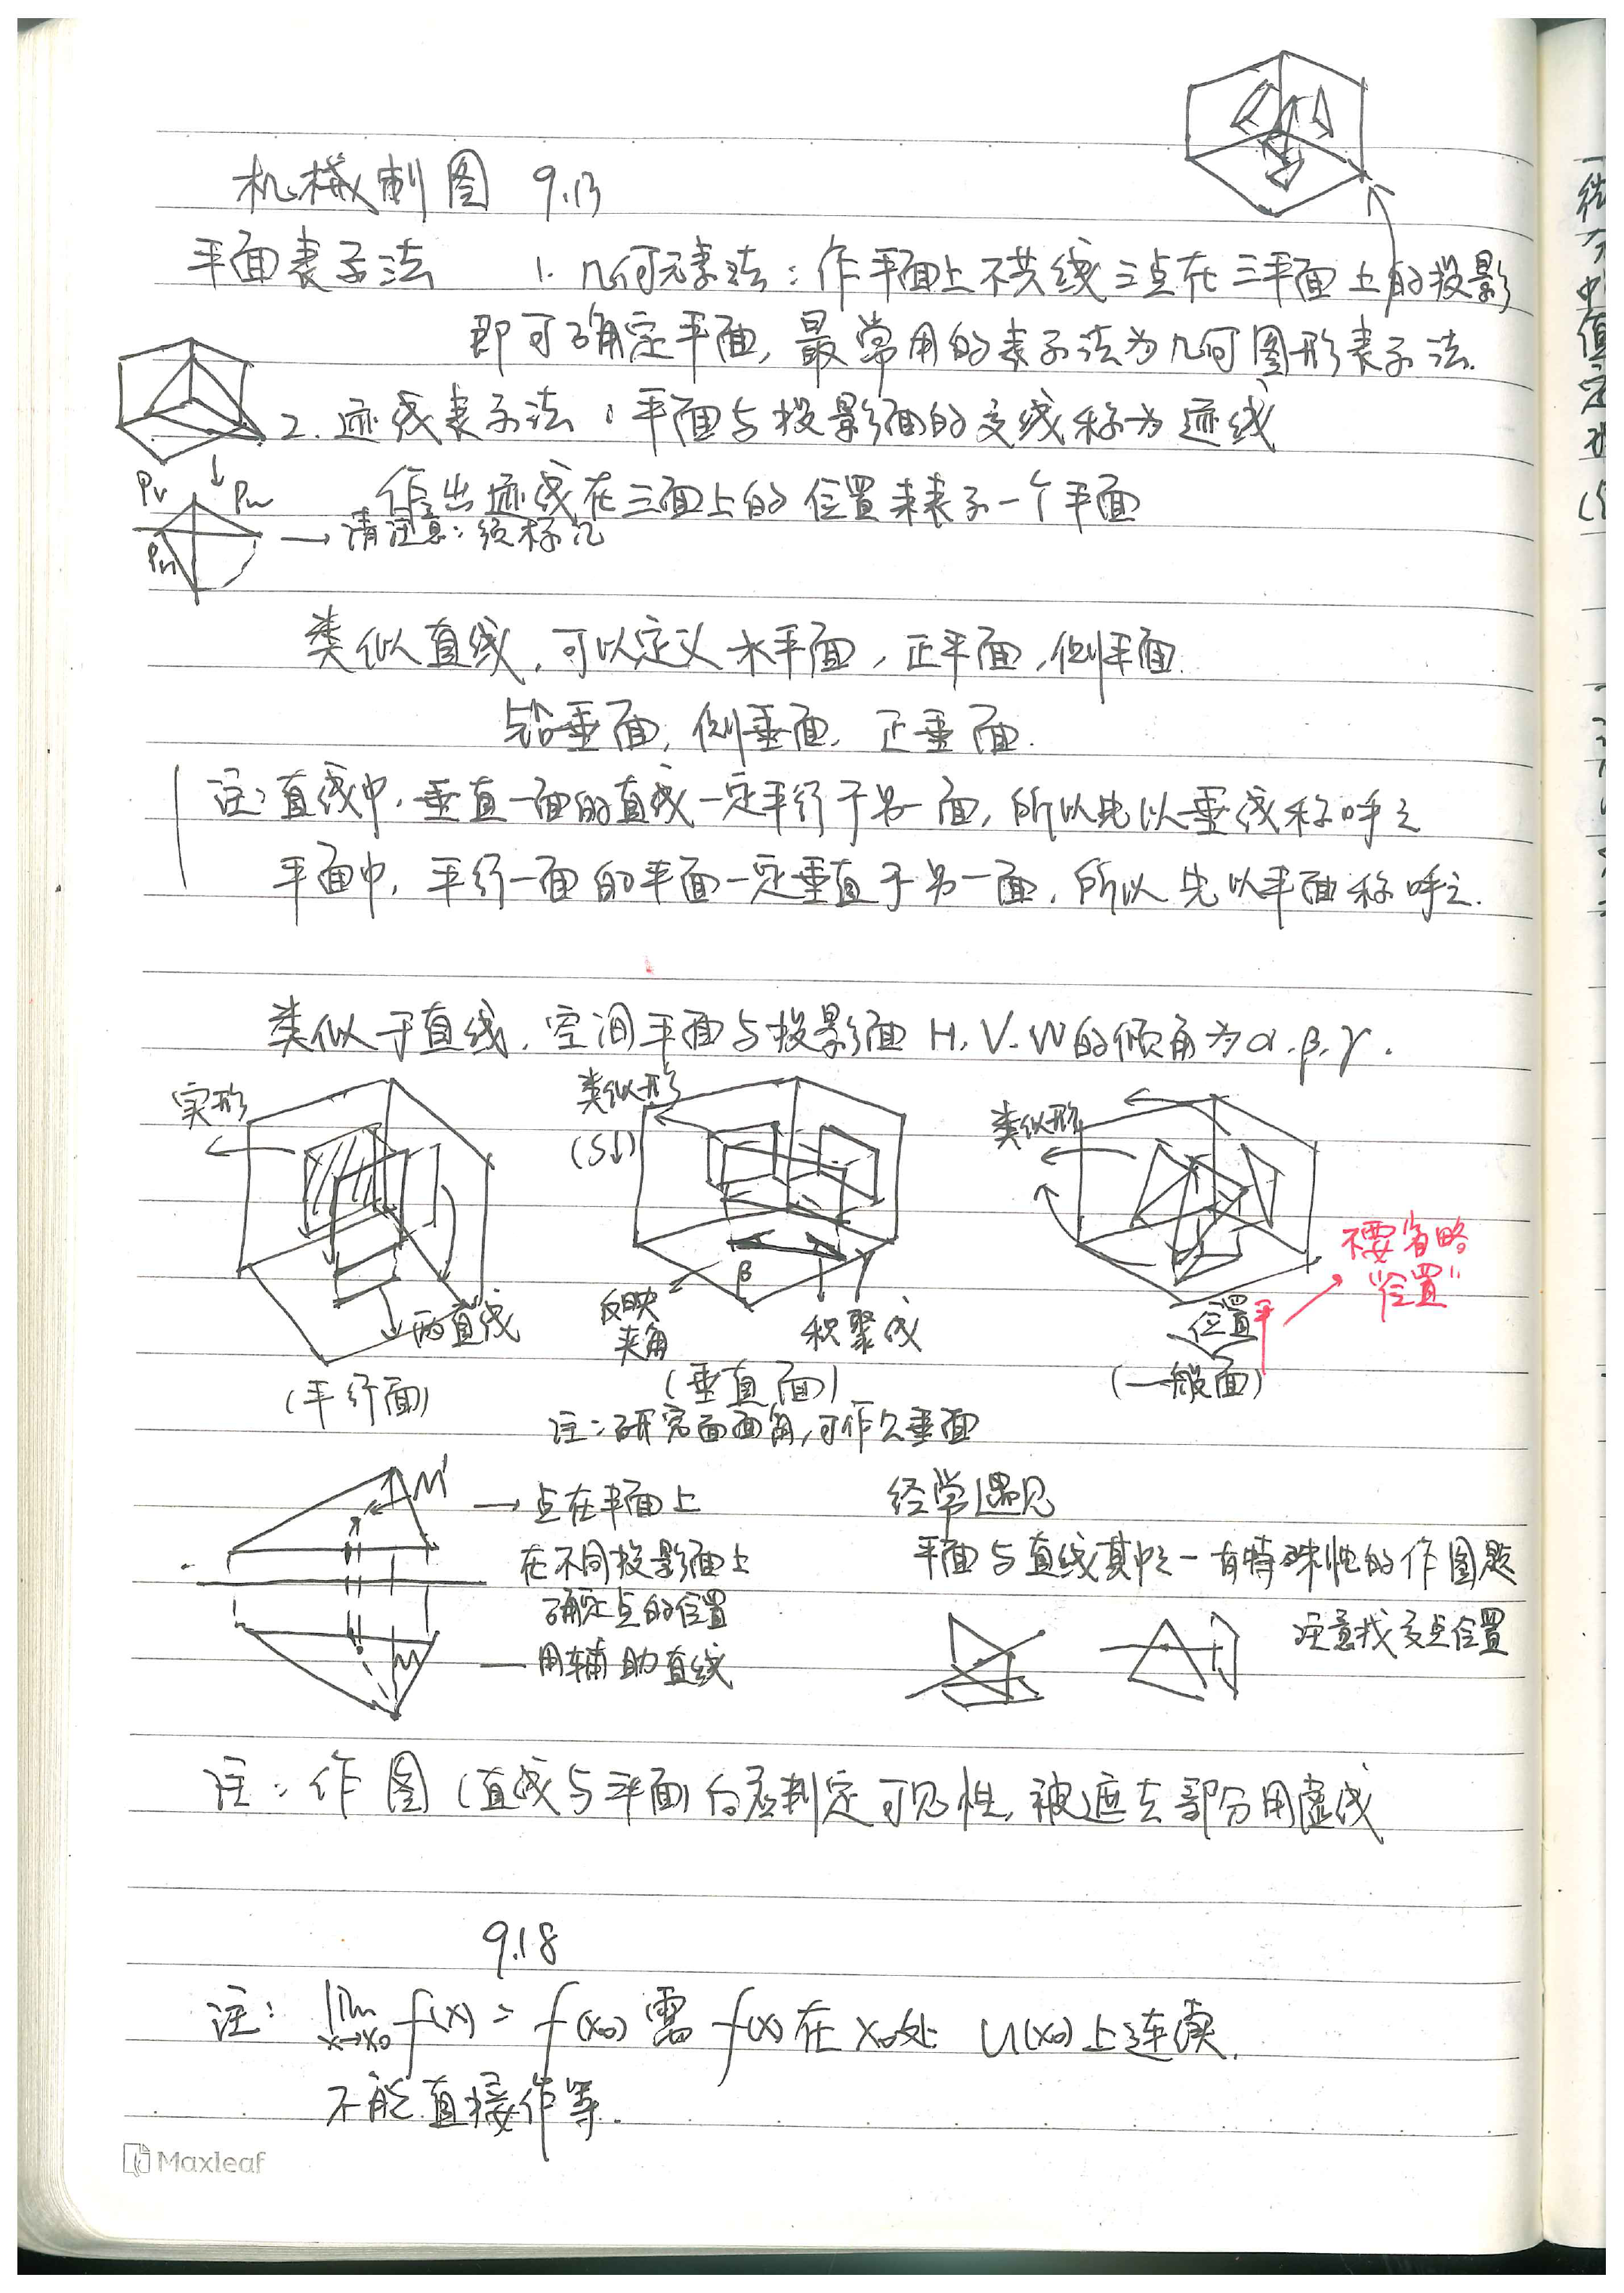 机械制图 9.13
平面表示法 1. 几何元素法：作平面上不共线三点在三平面上的投影
即可确定平面, 最常用的表示法为几何图形表示法.
2. 迹线表示法：平面与投影面的交线称为迹线
作出迹线在三面上的位置来表示一个平面
Pv Pw
PH
→ 请注意：须标记
类似直线, 可以定义水平面, 正平面, 侧平面.
铅垂面, 侧垂面, 正垂面.
注：直线中, 垂直一面的直线一定平行于另一面, 所以先以垂线称呼之
平面中, 平行一面的平面一定垂直于另一面, 所以先以平面称呼之.
类似于直线, 空间平面与投影面 H, V, W的倾角为α, β, γ.
实形
两直线
(平行面)
类似形
(S↓)
β γ
反映
夹角
积聚线
(垂直面)
注：研究面面角, 可作公垂面
类似形
位置
(一般面)
平
不要省略
“位置”
M'
→ 点在平面上
在不同投影面上
确定点的位置
M
— 用辅助直线
经常遇见
平面与直线其中之一有特殊性的作图题
注意找交点位置
注：作图(直线与平面)后应判定可见性, 被遮去部分用虚线
9.18
注： lim x→x₀ f(x) = f(x₀) 需 f(x) 在 x₀处 U(x₀) 上连续.
不能直接作等.
Maxleaf